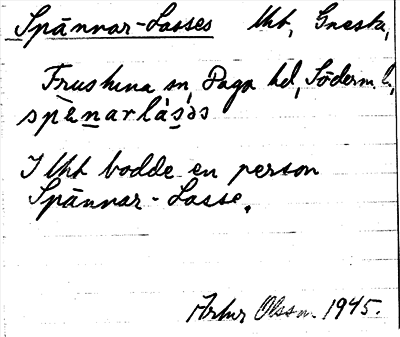 Spännar-Lasses lht, Gnesta,
Frustuna sn, Daga hd, Söderm. l.,
spɛ̀narlás̀əs
I lht bodde en person
Spännar-Lasse.
Artur Olsson 1945.